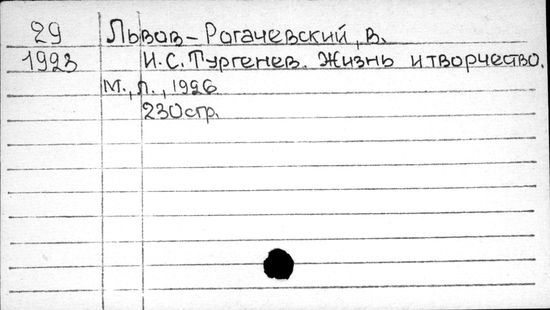 29 Львов-Рогачевский, В.
1923 И.С.Тургенев. Жизнь и творчество.
М., Л., 1926
230стр.